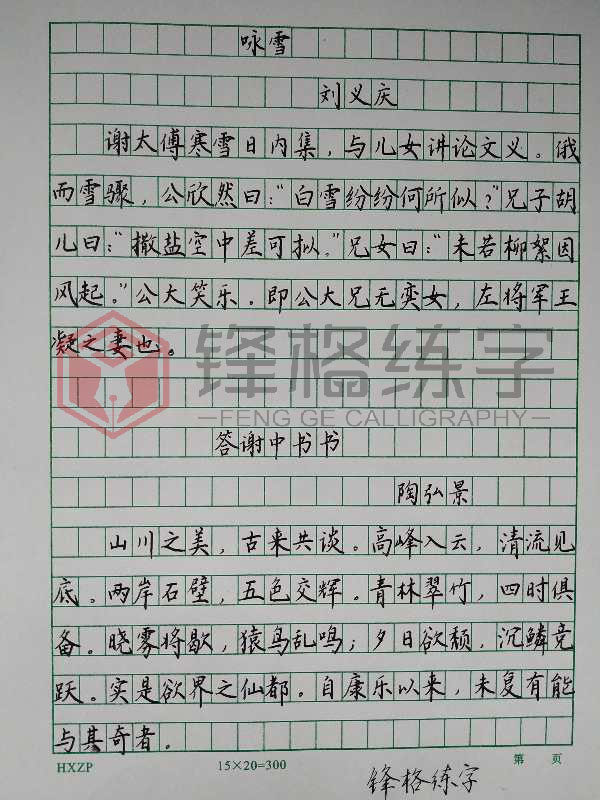 咏雪
刘义庆
谢太傅寒雪日内集，与儿女讲论文义。俄
而雪骤，公欣然曰：“白雪纷纷何所似？”兄子胡
儿曰：“撒盐空中差可拟。”兄女曰：“未若柳絮因
风起。”公大笑乐。即公大兄无奕女，左将军王
凝之妻也。
锋格练字
FENG GE CALLIGRAPHY
答谢中书书
陶弘景
山川之美，古来共谈。高峰入云，清流见
底。两岸石壁，五色交辉。青林翠竹，四时俱
备。晓雾将歇，猿鸟乱鸣；夕日欲颓，沉鳞竞
跃。实是欲界之仙都。自康乐以来，未复有能
与其奇者。
HXZP 15×20=300 第 页
锋格练字